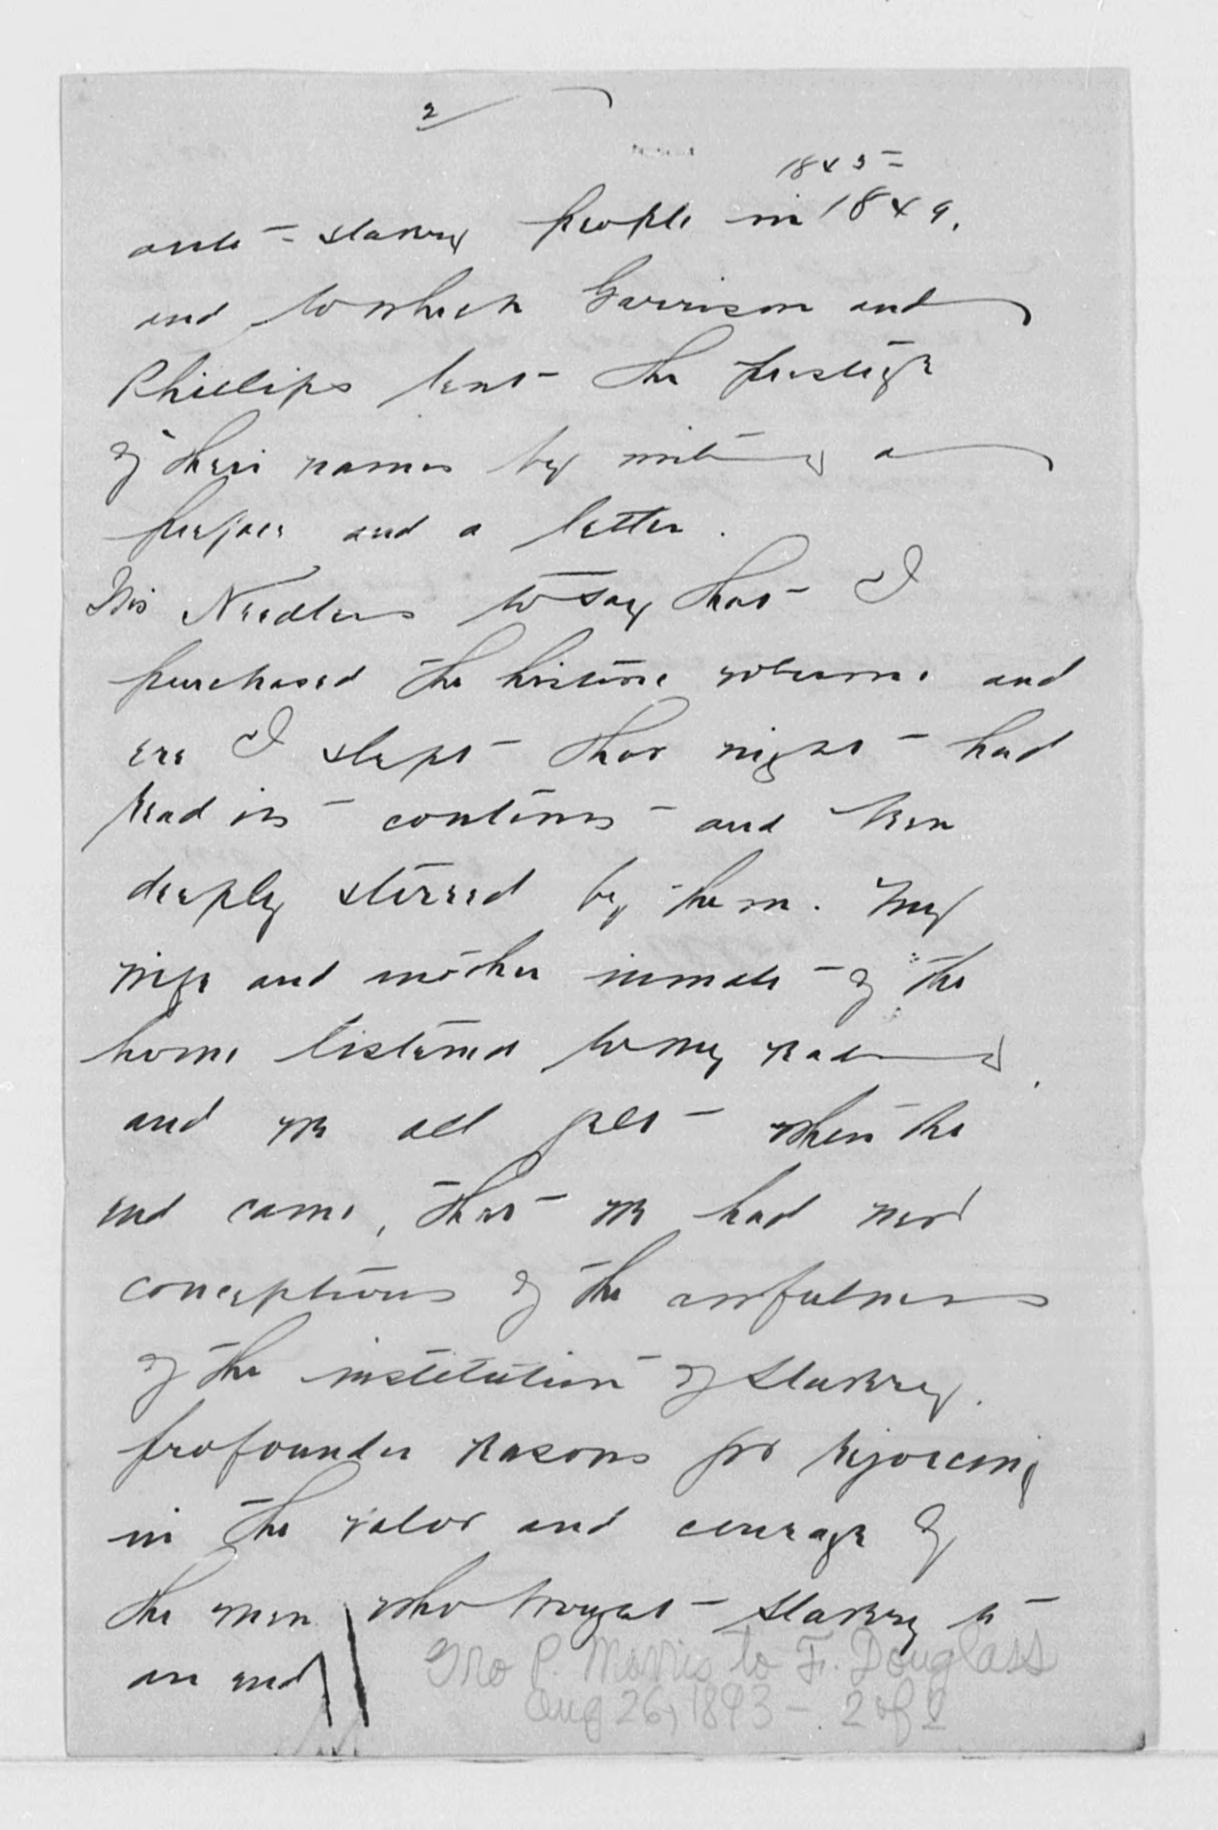 2
1845
anti-slavery people in 1849.
and to which Garrison and
Phillips lent the prestige
of their names by writing a
preface and a letter.
Tis Needless to say that I
purchased the historic volume and
ere I slept that night had
read its contents and been
deeply stirred by them. My
wife and another inmate of the
home listened to my reading,
and we all felt when the
end came, that we had new
conceptions of the awfulness
of the institution of slavery.
profounder reasons for rejoicing
in the valor and courage of
the men who brought slavery to
an end
Geo P. Morris to F. Douglass
Aug 26, 1893 - 2 of 2